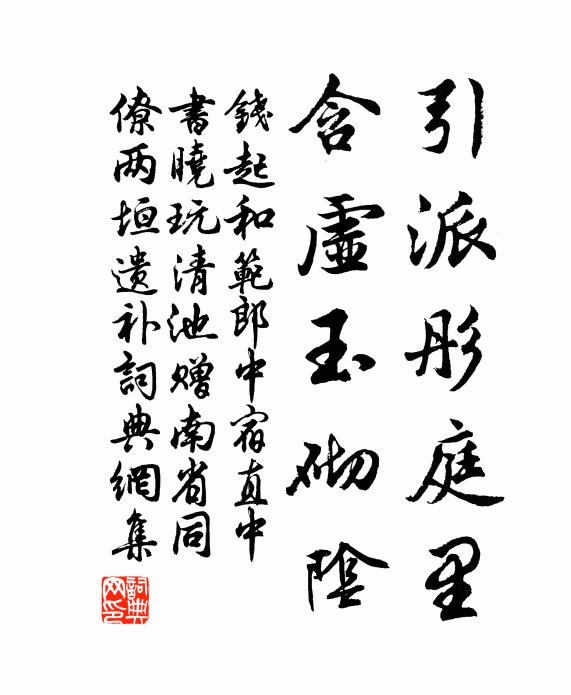 引派彤庭里
含虛玉砌陰
錢起和範郎中宿直中
書曉玩清池贈南省同
僚两垣遗补詞典網集
詞典网印